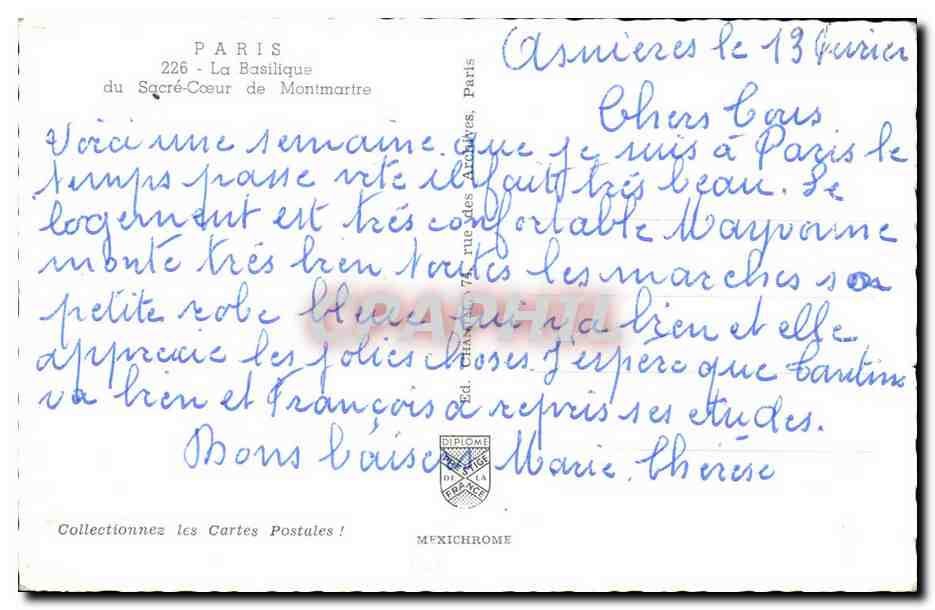 PARIS
226 - La Basilique
du Sacré-Cœur de Montmartre
Asnières le 13 fevrier
Chers Tous
Voici une semaine que je suis à Paris le
temps passe vite il fait très beau. Le
logement est très confortable Maryvonne
monte très bien toutes les marches sa
petite robe bleue lui va bien et elle
apprecie les jolies choses J'espère que Tantine
va bien et François a repris ses etudes.
Bons baisers Marie Thérèse
Ed. CHANTAL, 74, rue des Archives, Paris
DIPLOME
PRESTIGE
DE LA
FRANCE
Collectionnez les Cartes Postales !
MEXICHROME
CPAPHIL